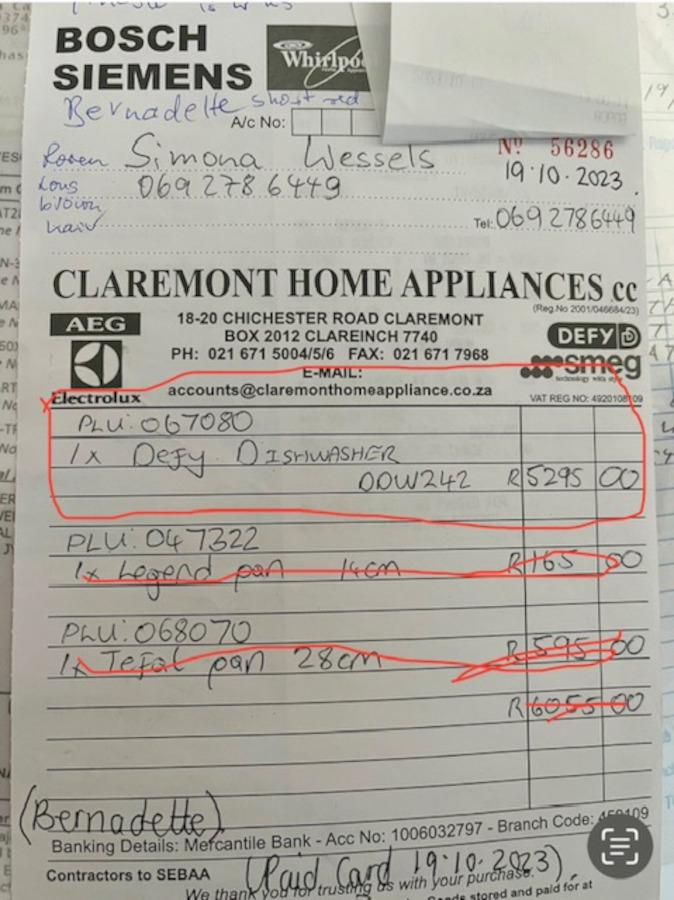 BOSCH
SIEMENS
Whirlpo
Bernadette short red
A/c No:
Simona Wessels
Nº 56286
Long
0692786449
19·10·2023.
brown
hair
Tel: 0692786449
CLAREMONT HOME APPLIANCES cc
(Reg.No 2001/046684/23)
AEG
18-20 CHICHESTER ROAD CLAREMONT
BOX 2012 CLAREINCH 7740
DEFY D
PH: 021 671 5004/5/6 FAX: 021 671 7968
smeg
technology with style
E-MAIL:
Electrolux
accounts@claremonthomeappliance.co.za
VAT REG NO: 4920108109
PLU: 067080
1x Defy DISHWASHER
DDW242 R5295 00
PLU: 047322
1x Legend pan 14cm R165 00
PLU: 068070
1x Tefal pan 28cm R595 00
R6055 00
(Bernadette)
Banking Details: Mercantile Bank - Acc No: 1006032797 - Branch Code:
Contractors to SEBAA
(Paid Card 19·10·2023).
We thank you for trusting us with your purchase.
stored and paid for at